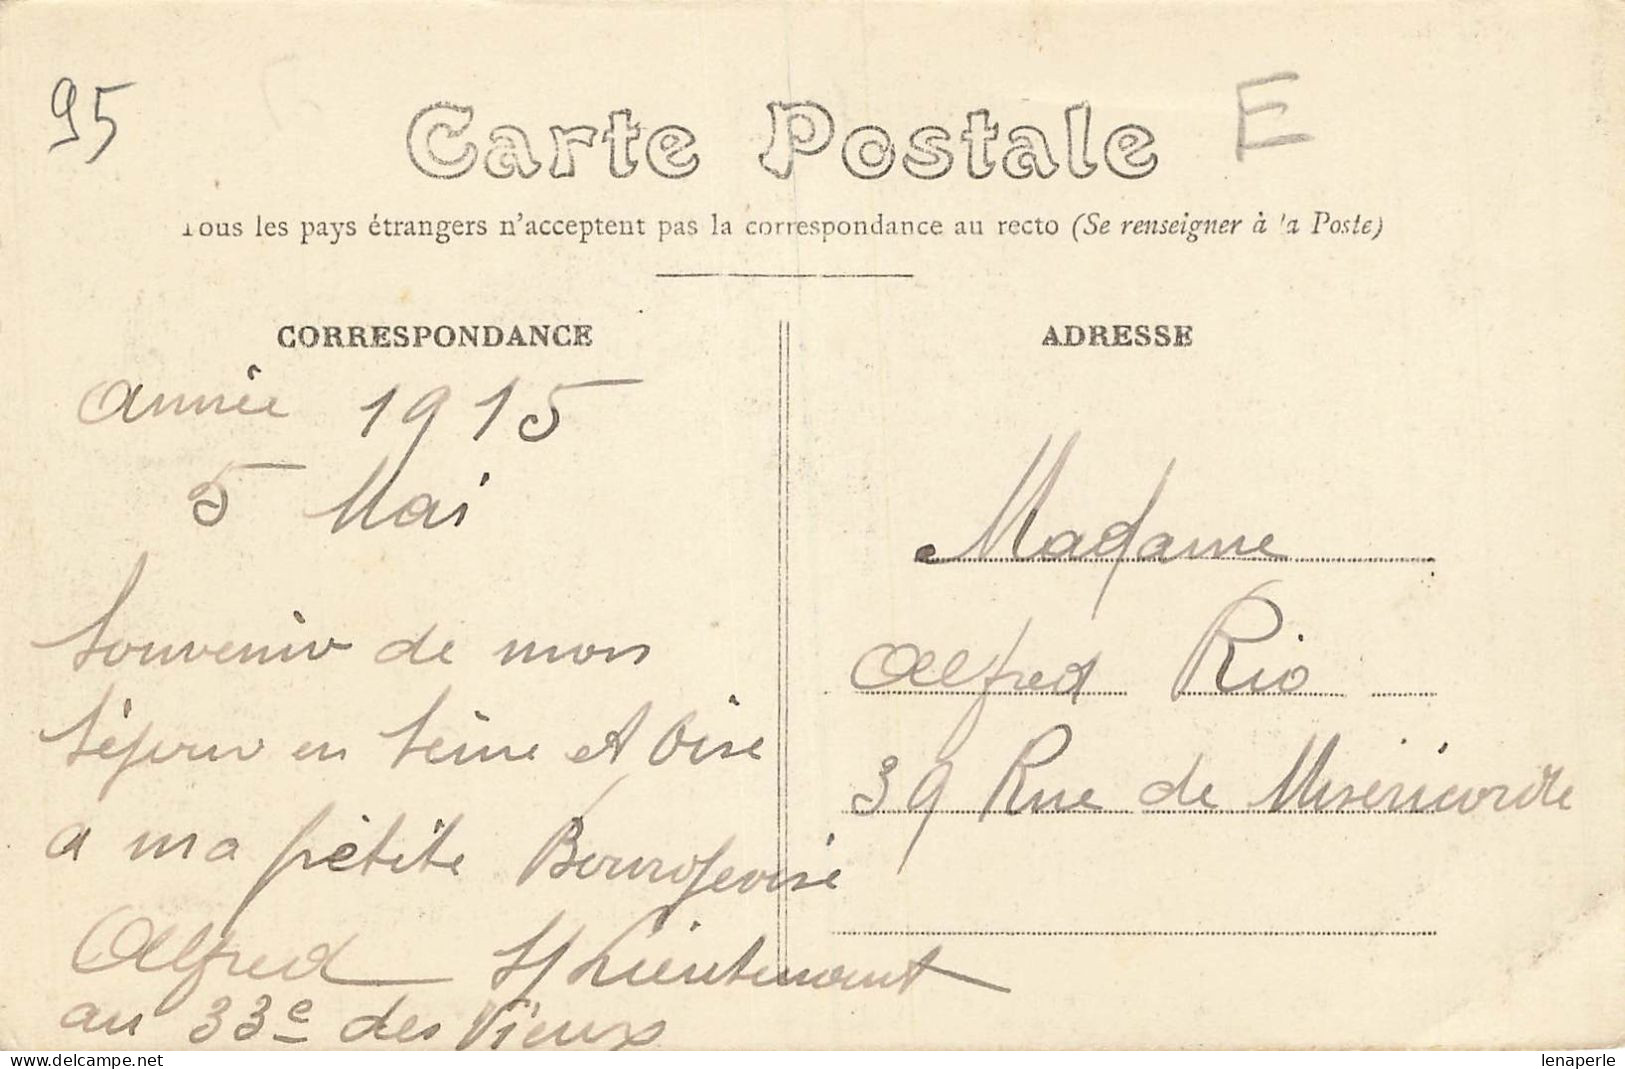 95
Carte Postale E
Tous les pays étrangers n'acceptent pas la correspondance au recto (Se renseigner à la Poste)
CORRESPONDANCE
année 1915
5 Mai
Souvenir de mon
séjour en Seine et Oise
a ma pètite Bourgeoise
Alfred S/Lieutenant
au 33e des Vieux
ADRESSE
Madame
Alfred Rio
39 Rue de Miséricorde
www.delcampe.net
lenaperle